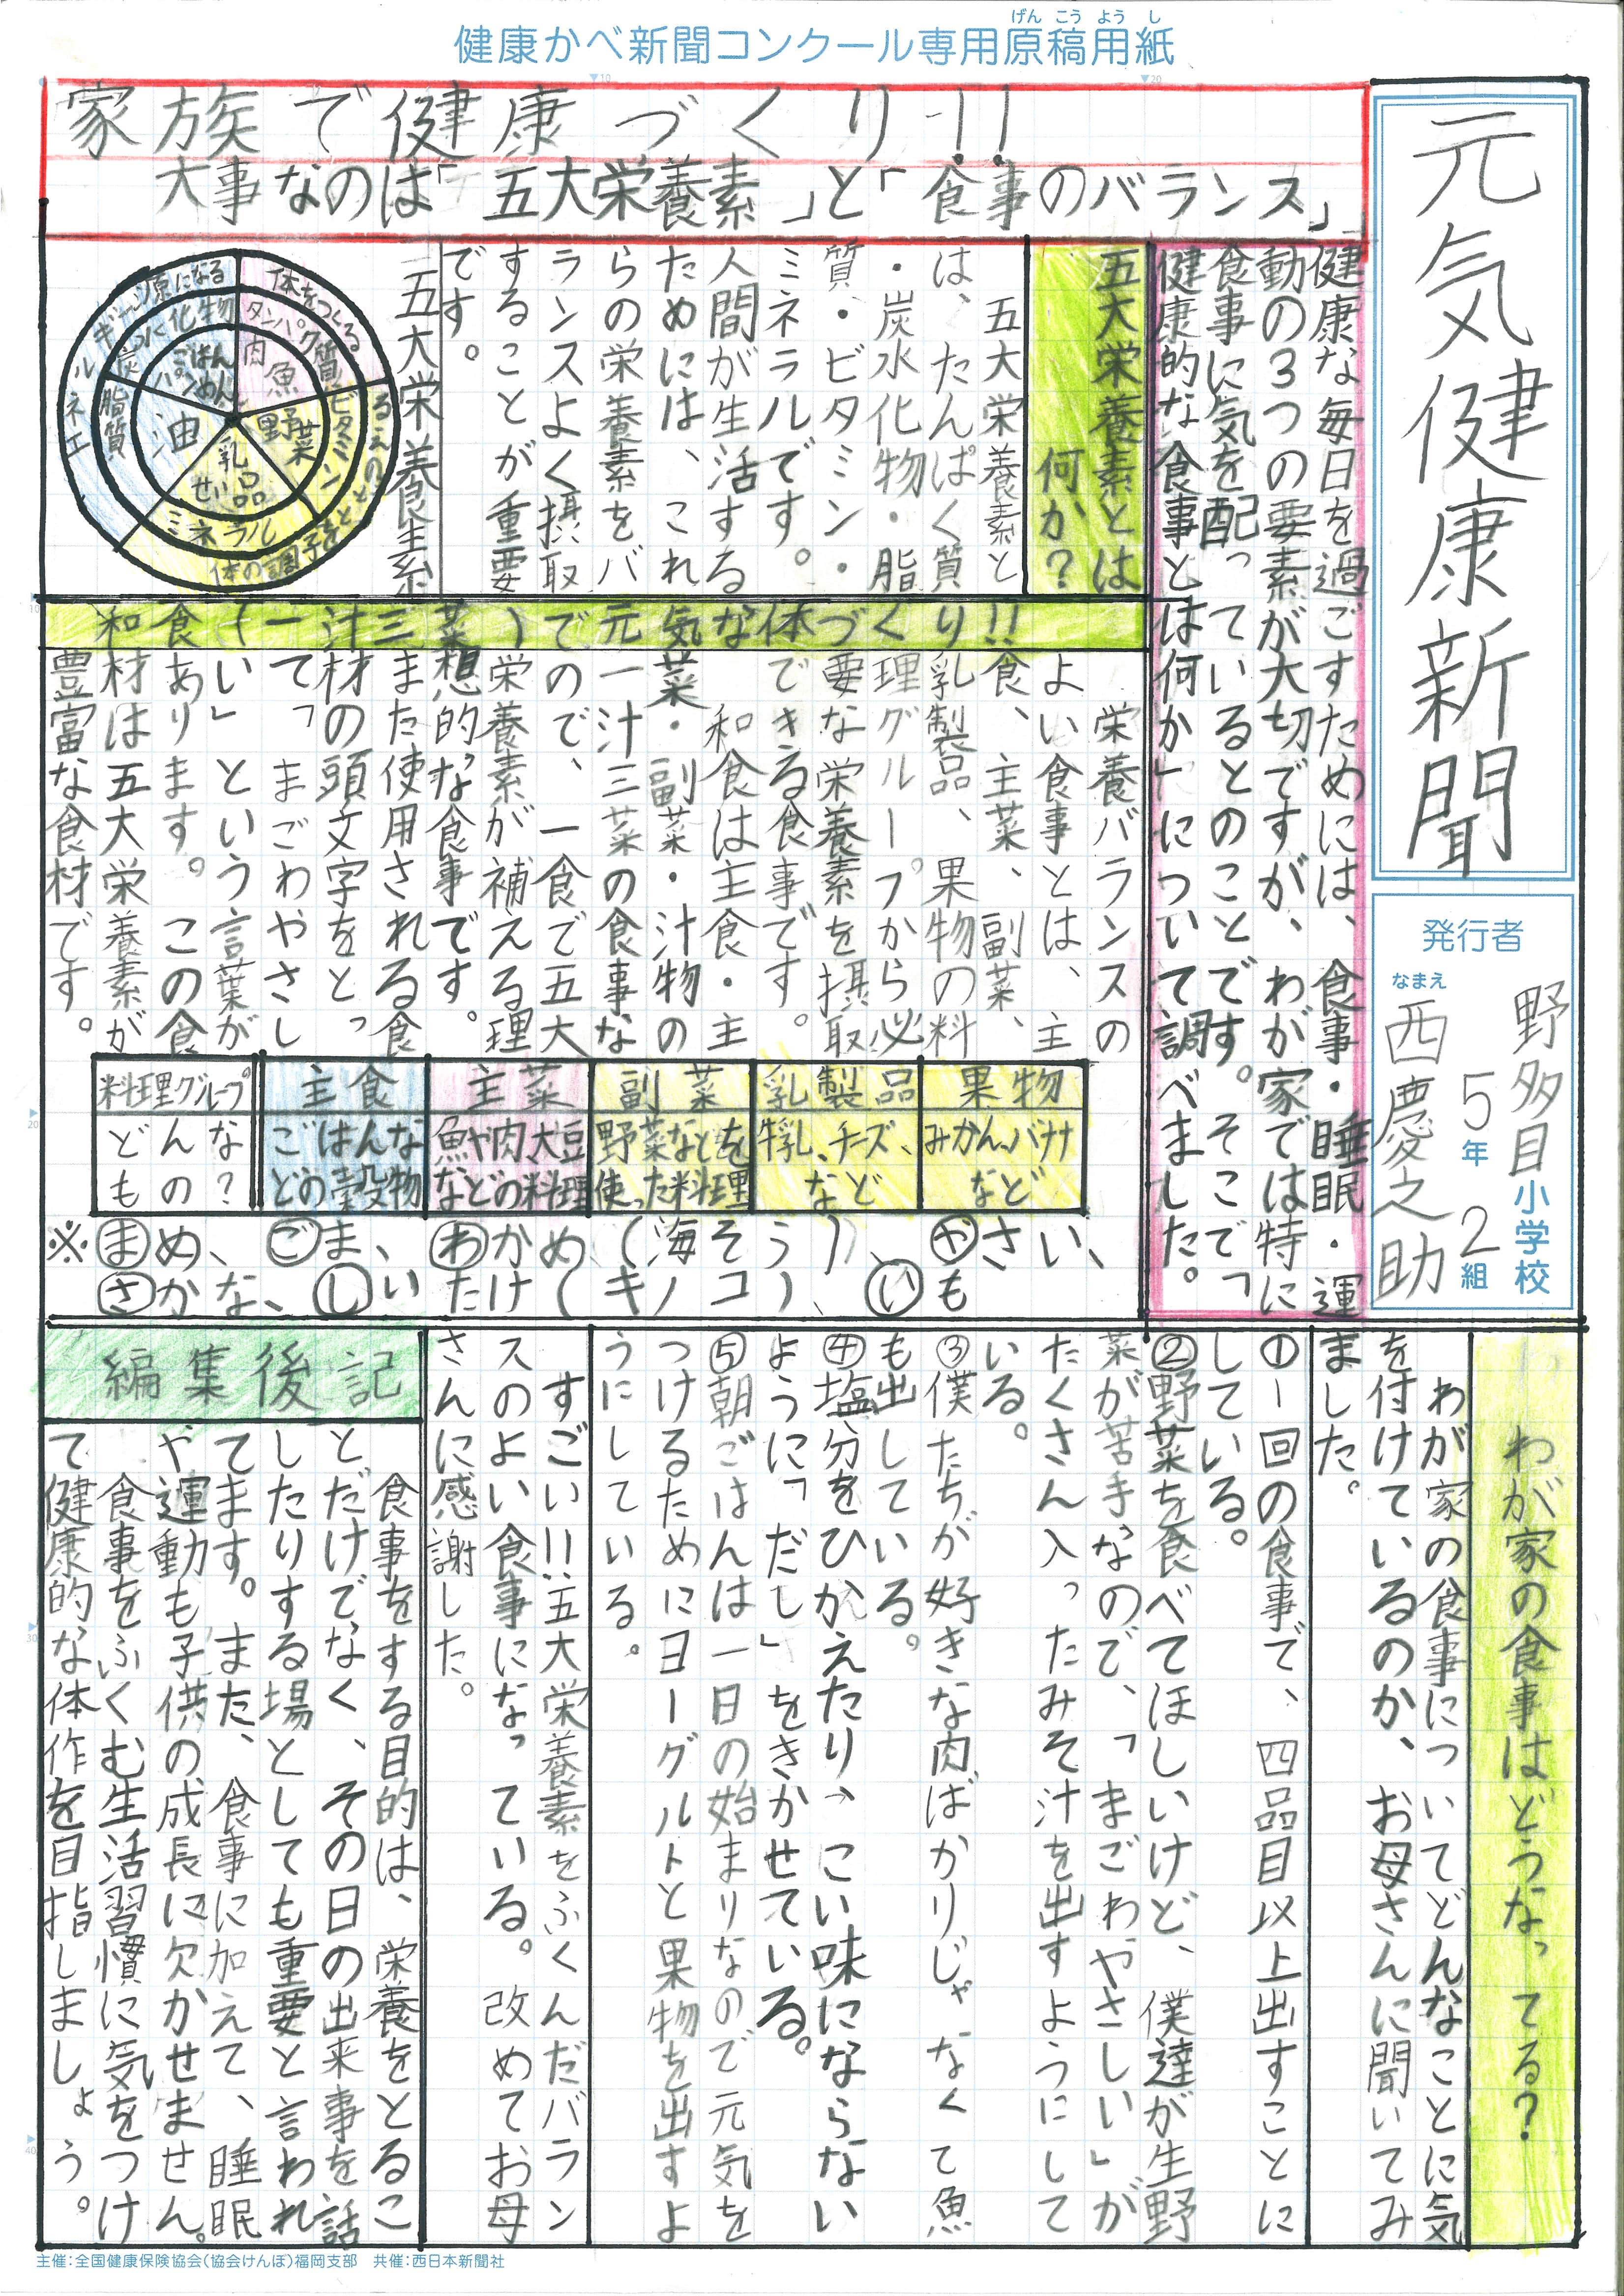 健康かべ新聞コンクール専用原稿用紙
げんこうようし
元気健康新聞
発行者
野多目小学校
5年2組
なまえ
西慶之助
家族で健康づくり!!
大事なのは「五大栄養素」と「食事のバランス」
健康な毎日を過ごすためには、食事・睡眠・運
動の3つの要素が大切ですが、わが家では特に
食事に気を配っているとのことです。そこで「
健康的な食事とは何か」について調べました。
五大栄養素とは
何か?
五大栄養素と
は、たんぱく質
・炭水化物・脂
質・ビタミン・
ミネラルです。
人間が生活する
ためには、これ
らの栄養素をバ
ランスよく摂取
することが重要
です。
五大栄養素
体をつくる
タンパク質
肉
魚
体の調子をととのえる
ビタミン
野菜
ミネラル
乳せい品
エネルギー源になる
脂質
油
炭水化物
ごはん
パン
めん
和食(一汁三菜)で元気な体づくり!!
栄養バランスの
よい食事とは、主
食、主菜、副菜、
乳製品、果物の料
理グループから必
要な栄養素を摂取
できる食事です。
和食は主食・主
菜・副菜・汁物の
一汁三菜の食事な
ので、一食で五大
栄養素が補える理
想的な食事です。
また使用される食
材の頭文字をとっ
て「まごわやさし
い」という言葉が
あります。この食
材は五大栄養素が
豊富な食材です。
料理グループ
主食
主菜
副菜
乳製品
果物
どんな
もの?
ごはんな
どの穀物
魚や肉、大豆
などの料理
野菜などを
使った料理
牛乳、チーズ、
など
みかん、バナナ
など
※まめ、ごま、わかめ(海そう)、やさい、
さかな、しいたけ(キノコ)、いも
わが家の食事はどうなってる?
わが家の食事についてどんなことに気
を付けているのか、お母さんに聞いてみ
ました。
①一回の食事で、四品目以上出すことに
している。
②野菜を食べてほしいけど、僕達が生野
菜が苦手なので、「まごわやさしい」が
たくさん入ったみそ汁を出すようにして
いる。
③僕たちが好きな肉ばかりじゃなくて魚
も出している。
④塩分をひかえたり、こい味にならない
ように「だし」をきかせている。
⑤朝ごはんは一日の始まりなので元気を
つけるためにヨーグルトと果物を出すよ
うにしている。
すごい!!五大栄養素をふくんだバラン
スのよい食事になっている。改めてお母
さんに感謝した。
編集後記
食事をする目的は、栄養をとるこ
とだけでなく、その日の出来事を話
したりする場としても重要と言われ
てます。また、食事に加えて、睡眠
や運動も子供の成長に欠かせません。
食事をふくむ生活習慣に気をつけ
て健康的な体作を目指しましょう。
主催:全国健康保険協会(協会けんぽ)福岡支部　共催:西日本新聞社